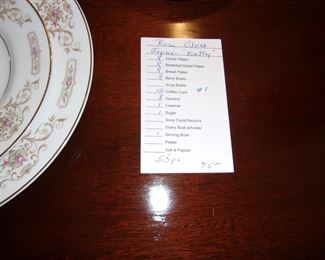 Rose China
Japan "Kathy"
8 Dinner Plates
Breakfast/Salad Plates
8 Bread Plates
8 Berry Bowls
Soup Bowls
12 Coffee Cups #7
8 Saucers
1 Creamer
1 Sugar
Soup Cups/Saucers
Gravy Boat w/holder
1 Serving Bowl
Platter
Salt & Pepper
55 pc